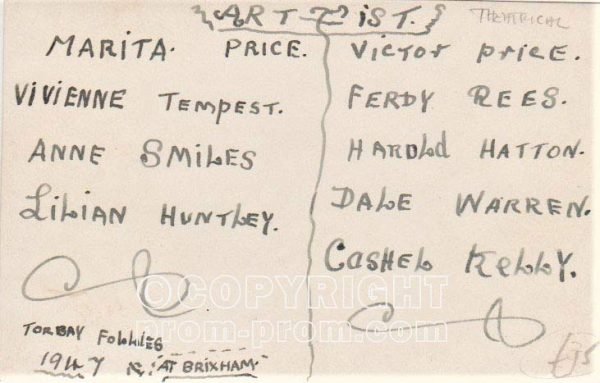 ART-TIST.
THEATRICAL
MARITA. PRICE.
VIVIENNE TEMPEST.
ANNE SMILES
LILIAN HUNTLEY.
VICTOR PRICE.
FERDY REES.
HAROLD HATTON.
DALE WARREN.
CASHEL KELLY.
TORBAY FOLLIES
1947
AT BRIXHAM
©COPYRIGHT
prom-prom.com